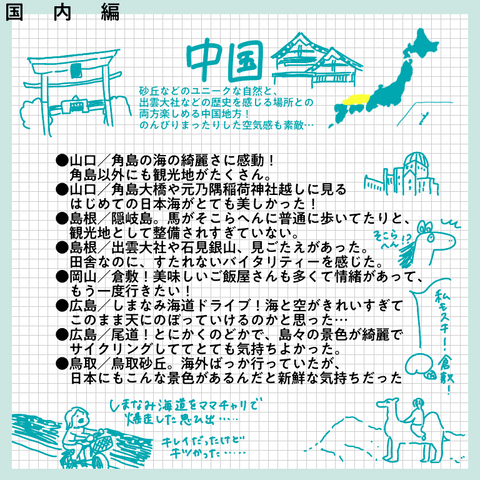 国内編
中国
砂丘などのユニークな自然と、
出雲大社などの歴史を感じる場所との
両方楽しめる中国地方！
のんびりまったりした空気感も素敵…
●山口／角島の海の綺麗さに感動！
角島以外にも観光地がたくさん。
●山口／角島大橋や元乃隅稲荷神社越しに見る
はじめての日本海がとても美しかった！
●島根／隠岐島。馬がそこらへんに普通に歩いてたりと、
観光地として整備されすぎていない。
●島根／出雲大社や石見銀山、見ごたえがあった。
田舎なのに、すたれないバイタリティーを感じた。
●岡山／倉敷！美味しいご飯屋さんも多くて情緒があって、
もう一度行きたい！
●広島／しまなみ海道ドライブ！海と空がきれいすぎて
このまま天にのぼっていけるのかと思った…
●広島／尾道！とにかくのどかで、島々の景色が綺麗で
サイクリングしててとても気持ちよかった。
●鳥取／鳥取砂丘。海外ばっか行っていたが、
日本にもこんな景色があるんだと新鮮な気持ちだった
そこらへん!?
私もスキー！倉敷！
しまなみ海道をママチャリで
爆走した思ひ出……
キレイだったけど
キツかった……